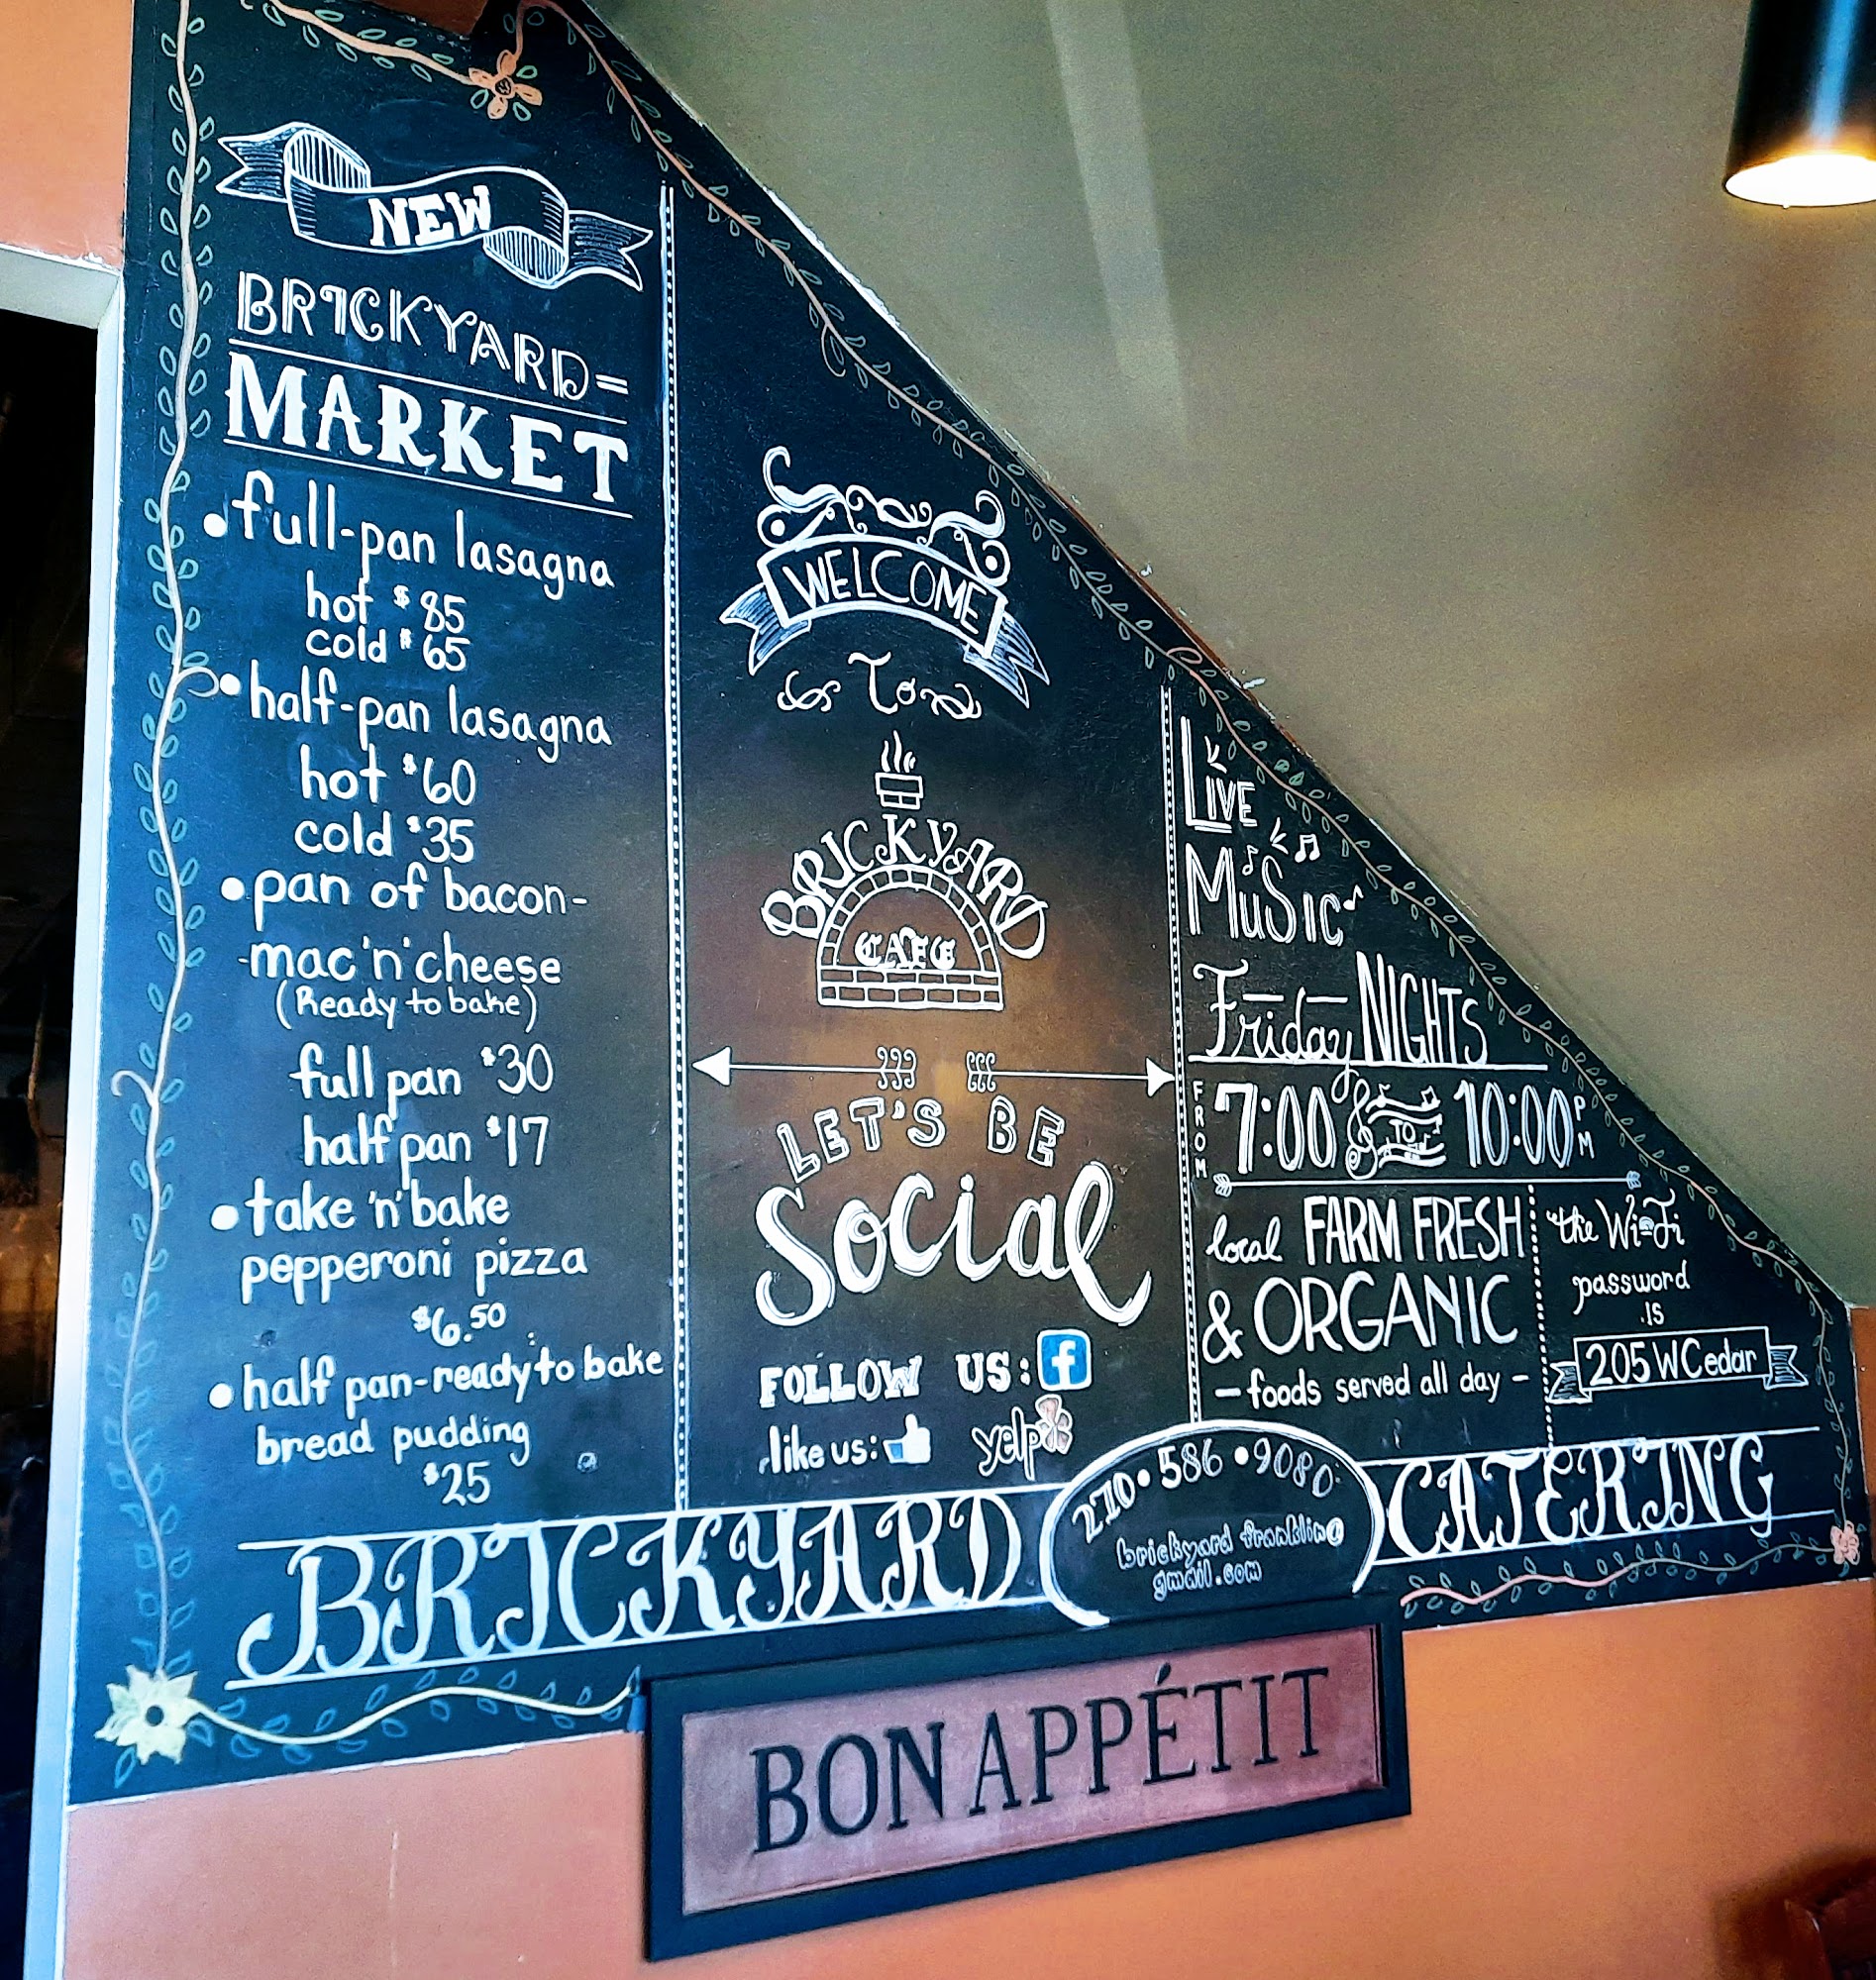 NEW
BRICKYARD=
MARKET
•full-pan lasagna
hot $85
cold $65
•half-pan lasagna
hot $60
cold $35
•pan of bacon-
-mac 'n' cheese
(Ready to bake)
full pan $30
half pan $17
•take 'n' bake
pepperoni pizza
$6.50
•half pan-ready to bake
bread pudding
$25
WELCOME
To
BRICKYARD
CAFE
LET'S BE
Social
FOLLOW US: f
like us: yelp
LIVE
MuSic
Friday NIGHTS
FROM 7:00 TO 10:00 PM
local FARM FRESH
& ORGANIC
- foods served all day -
the Wi-Fi
password
is
205WCedar
BRICKYARD
270•586•9080
brickyard franklin@
gmail.com
CATERING
BON APPÉTIT